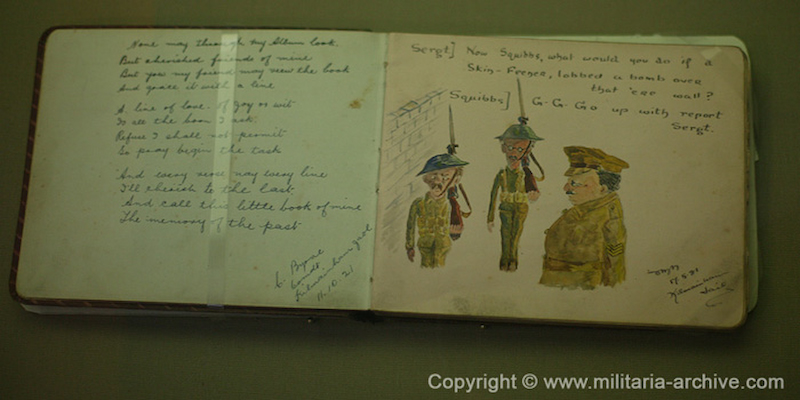 None may through my Album look.
But cherished friends of mine
But you my friend may view the book
And grace it with a line
A line of love. of joy or wit
Is all the boon I ask.
Refuse I shall not permit
So pray begin the task
And every verse nay every line
I'll cherish to the last
And call this little book of mine
The memory of the past
C. Byrne
Kilmainham Gaol
11.10.21
Sergt] Now Squibbs, what would you do if a
Skin-Feener, lobbed a bomb over
that 'ere wall?
Squibbs] G.G. Go up with report
Sergt.
Kilmainham
Jail
Copyright © www.militaria-archive.com